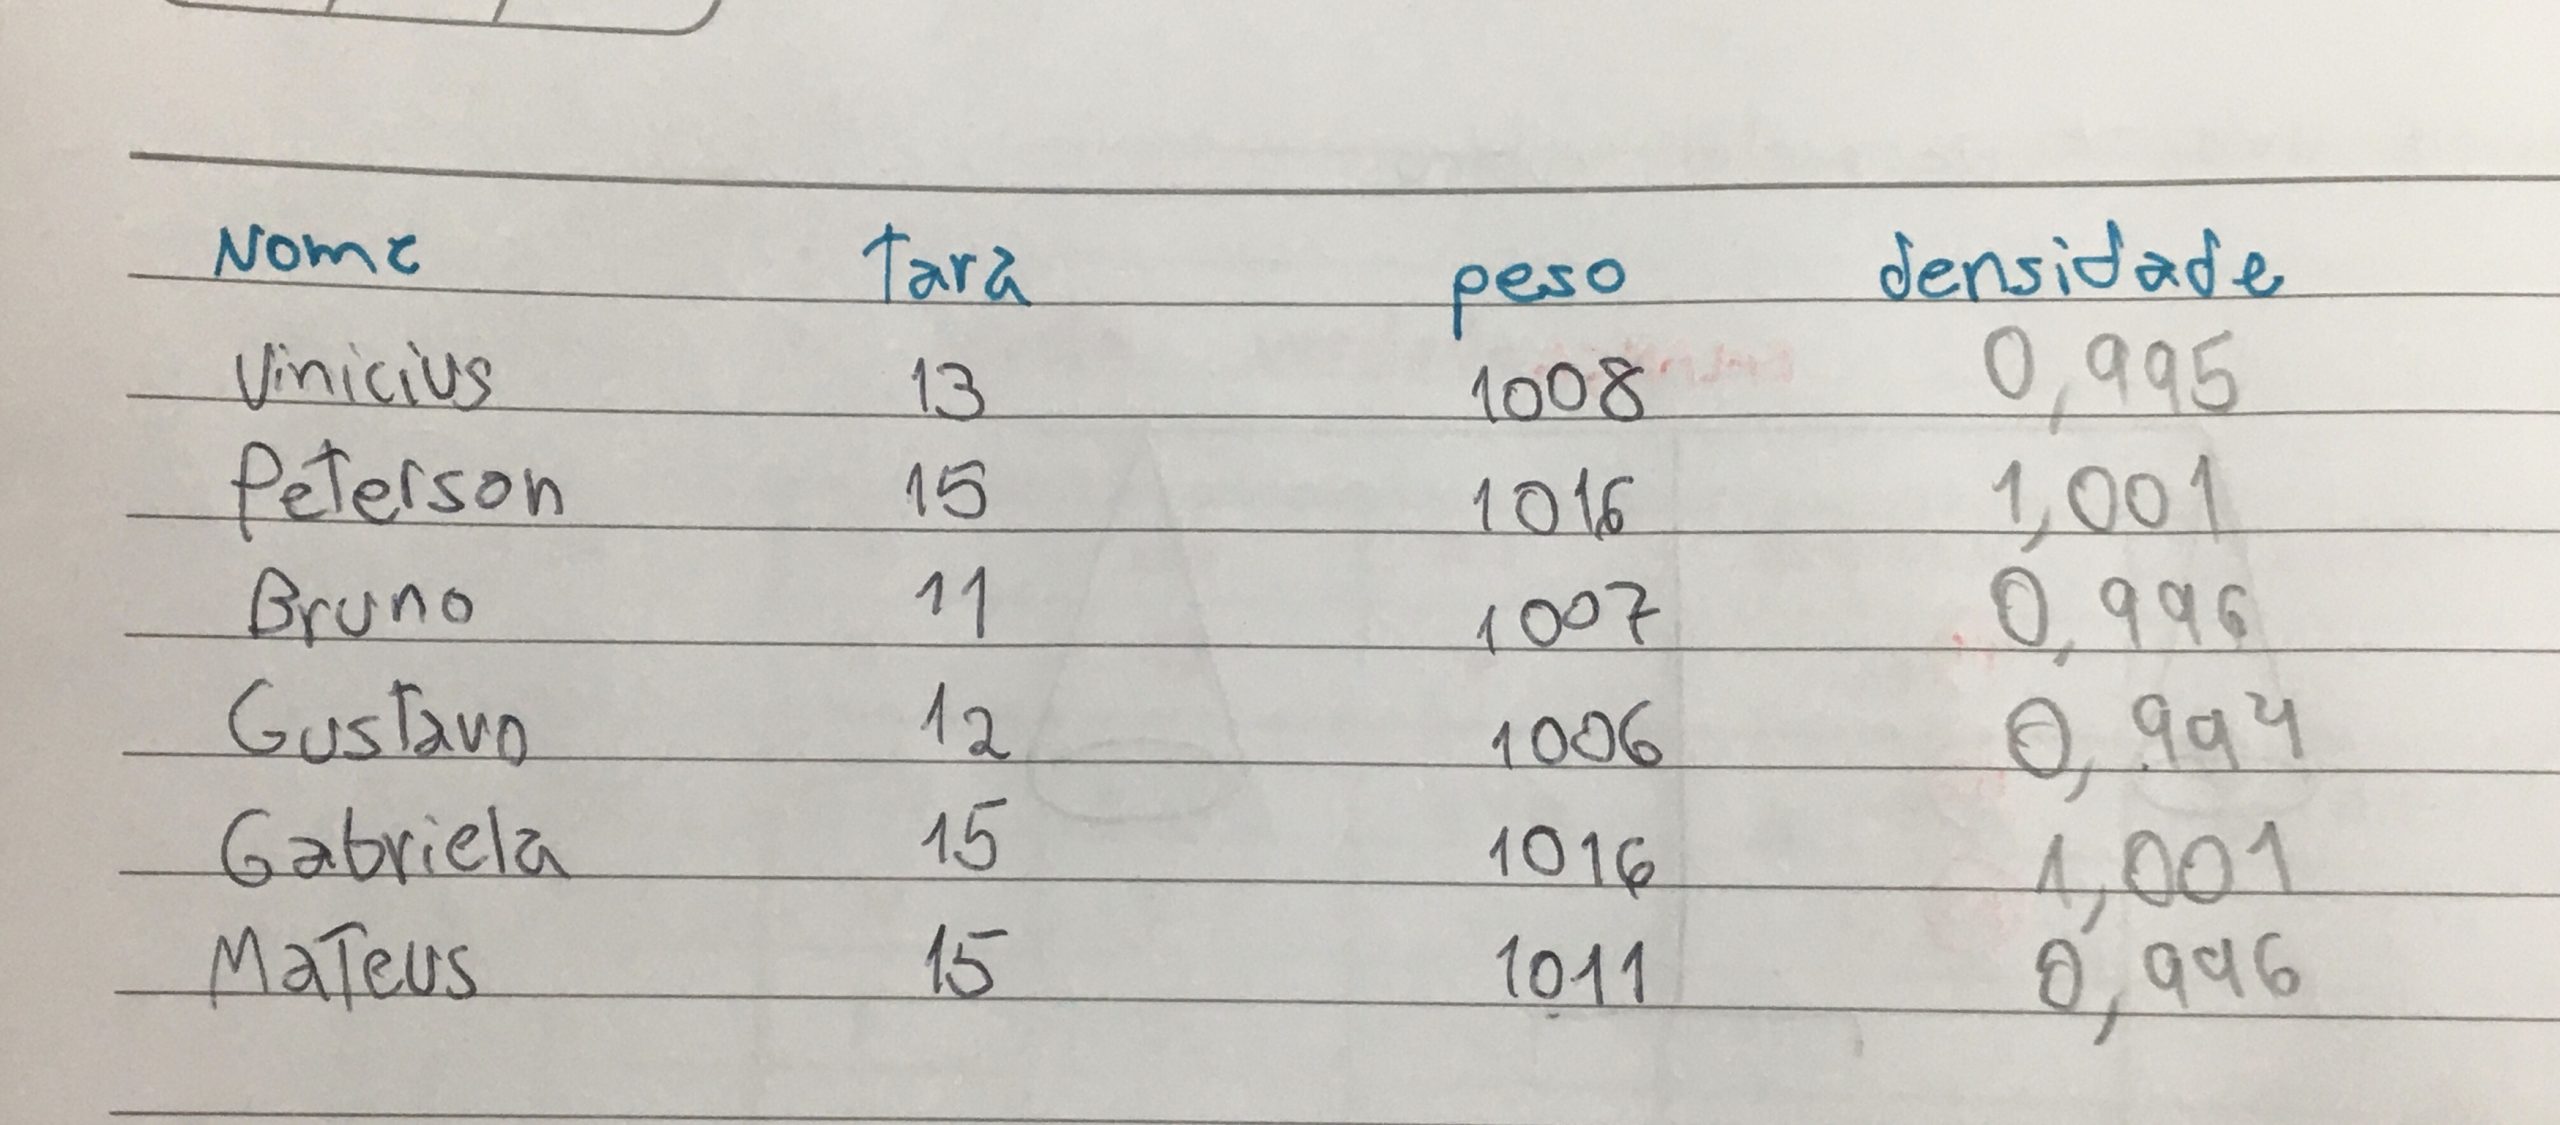 Nome Tara peso densidade
Vinicius 13 1008 0,995
Peterson 15 1016 1,001
Bruno 11 1007 0,996
Gustavo 12 1006 0,994
Gabriela 15 1016 1,001
Mateus 15 1011 0,996